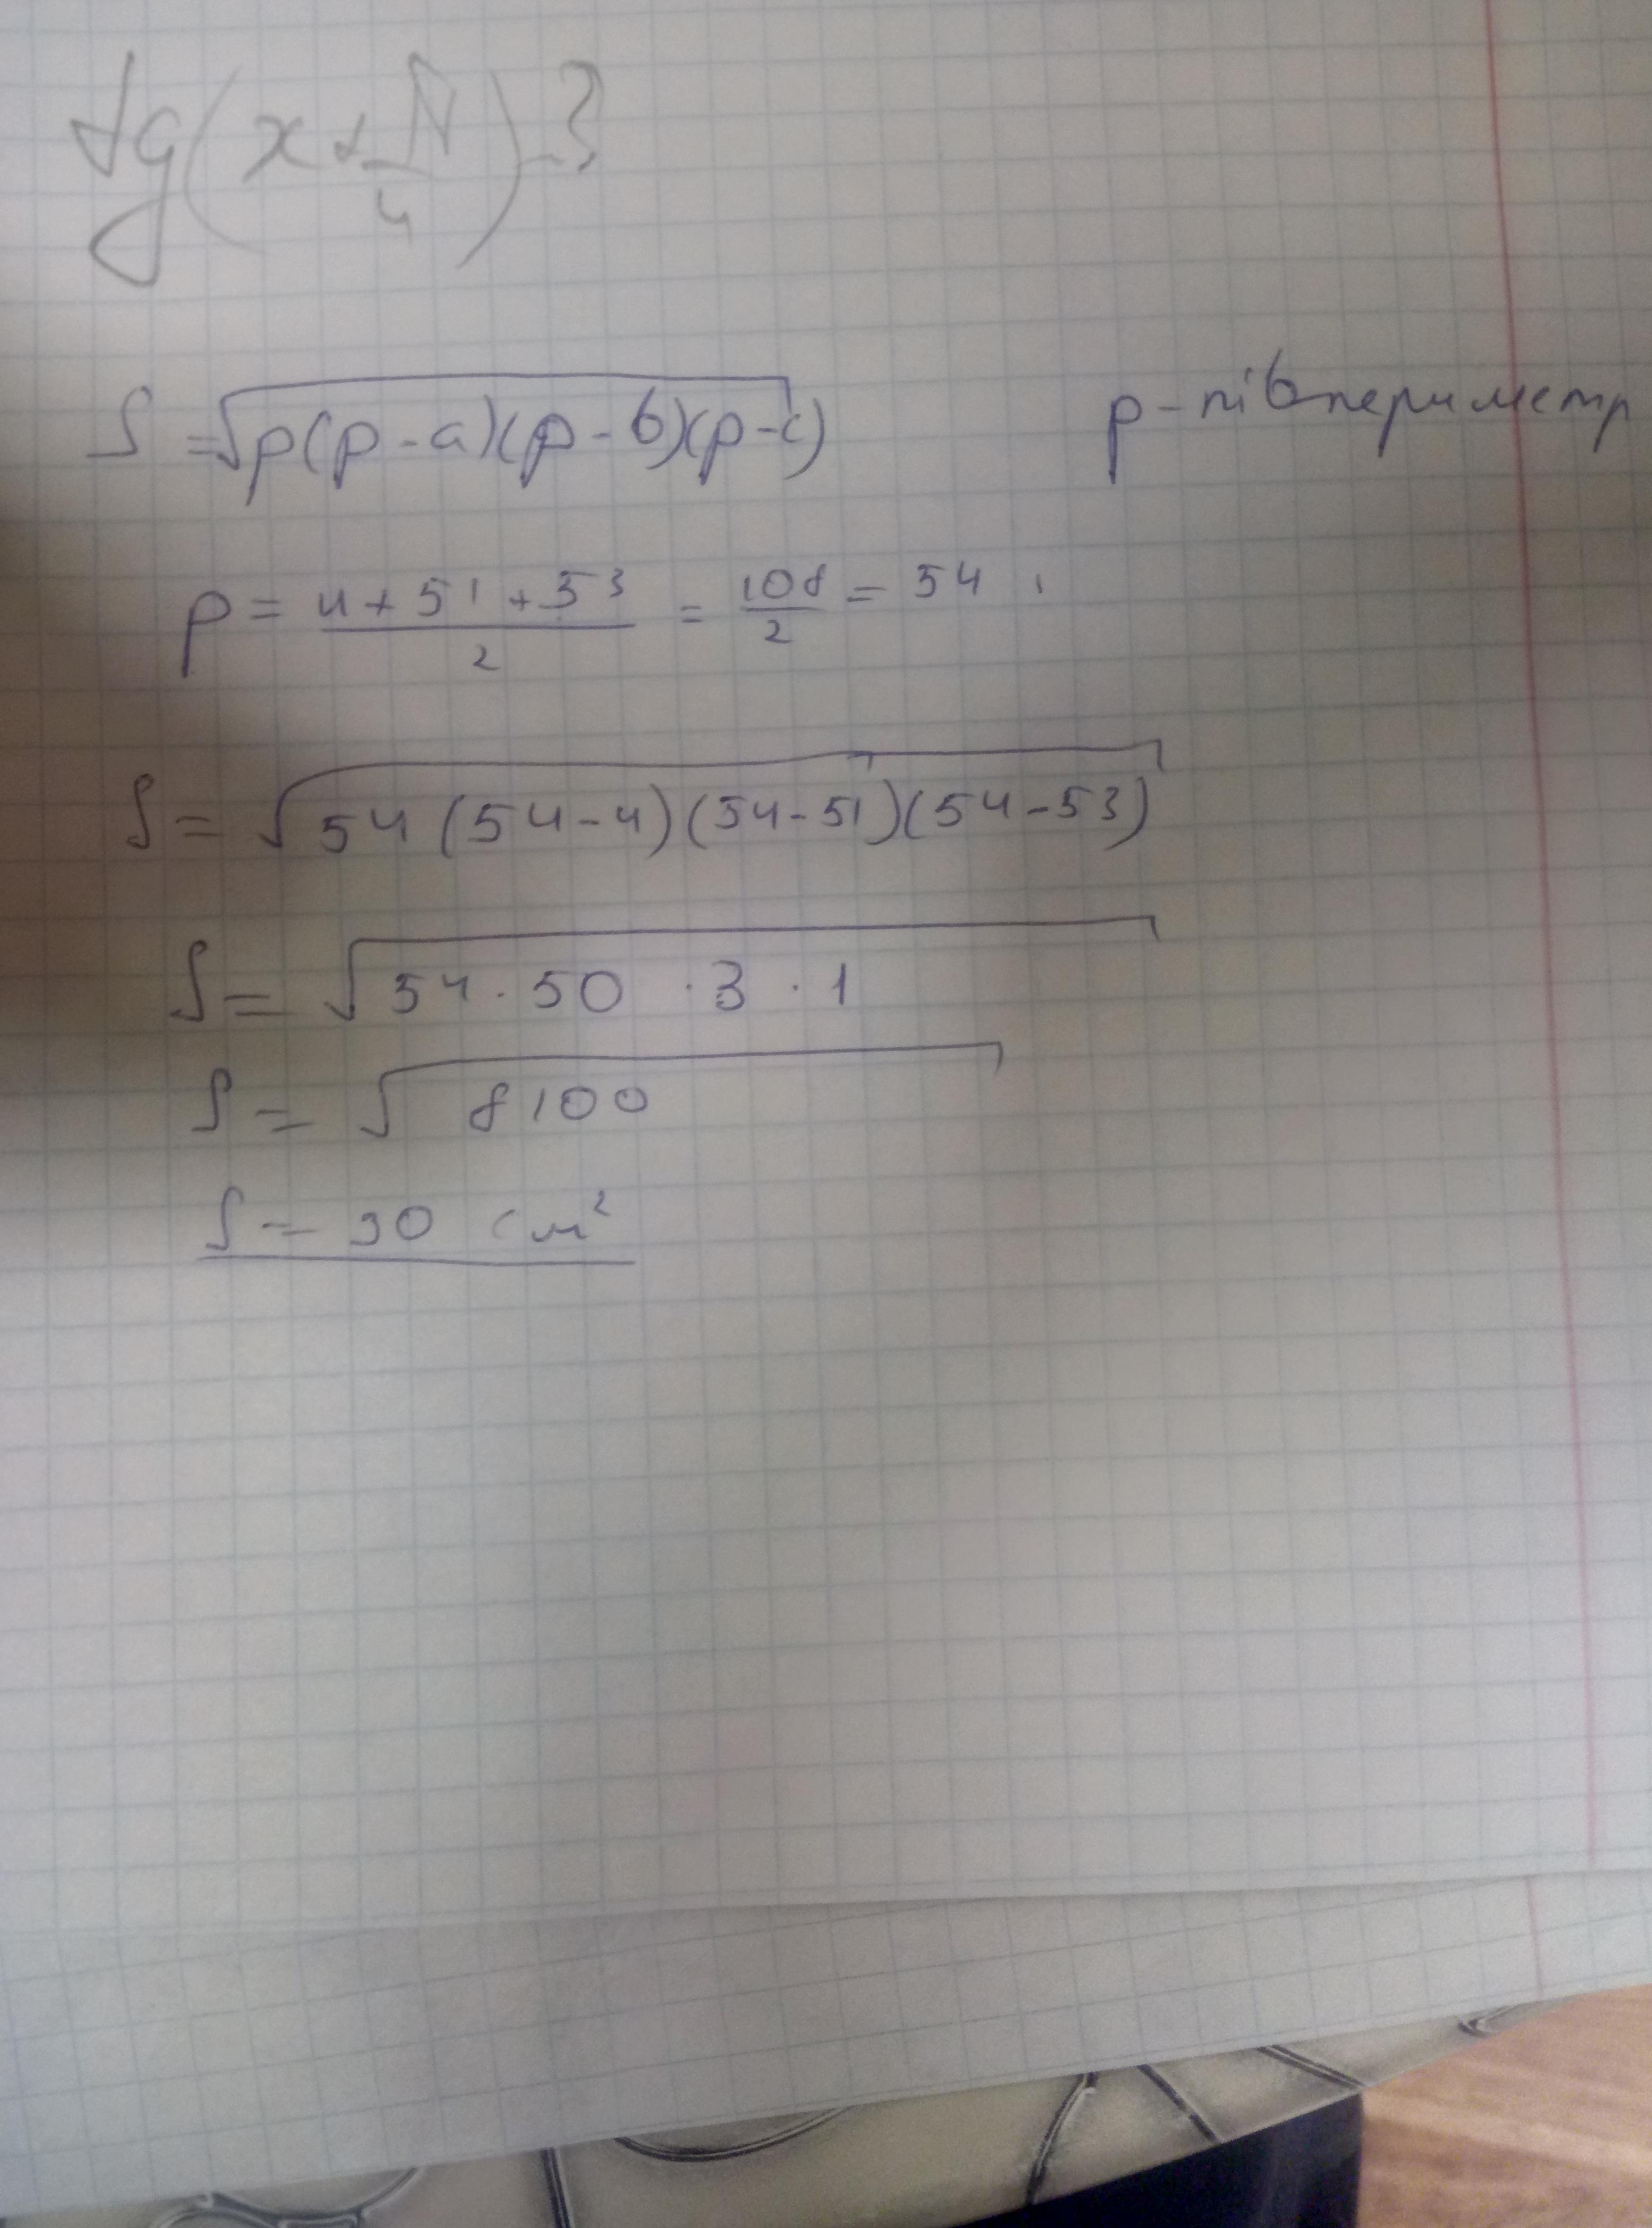 tg(x+π/4)-3
S=√p(p-a)(p-b)(p-c) p-півпериметр
p=4+51+53/2=108/2=54
S=√54(54-4)(54-51)(54-53)
S=√54·50·3·1
S=√8100
S=90 см²